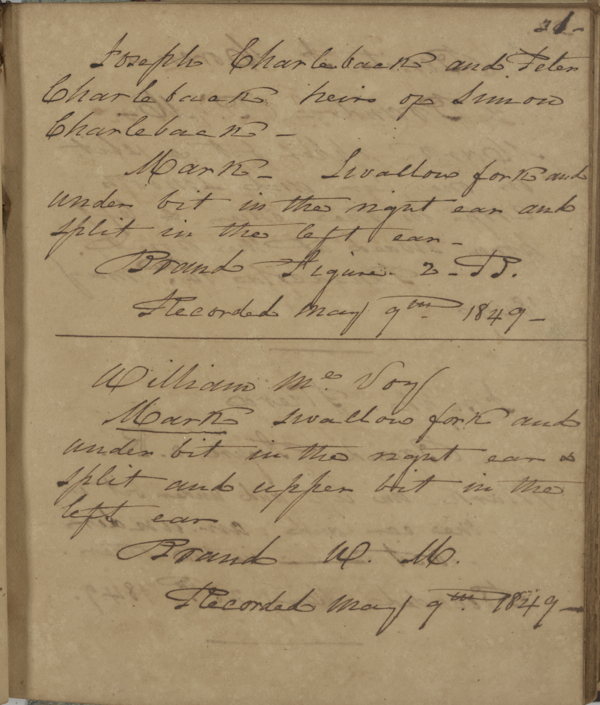 Joseph Charleback and Peter
Charleback heirs of Simon
Charleback -
Mark - Swallow fork and
under bit in the right ear and
split in the left ear -
Brand Figure 2 - B.
Recorded May 9th 1849 -
William Mc Voy
Mark Swallow fork and
under bit in the right ear &
split and upper bit in the
left ear
Brand W. M.
Recorded May 9th 1849 -